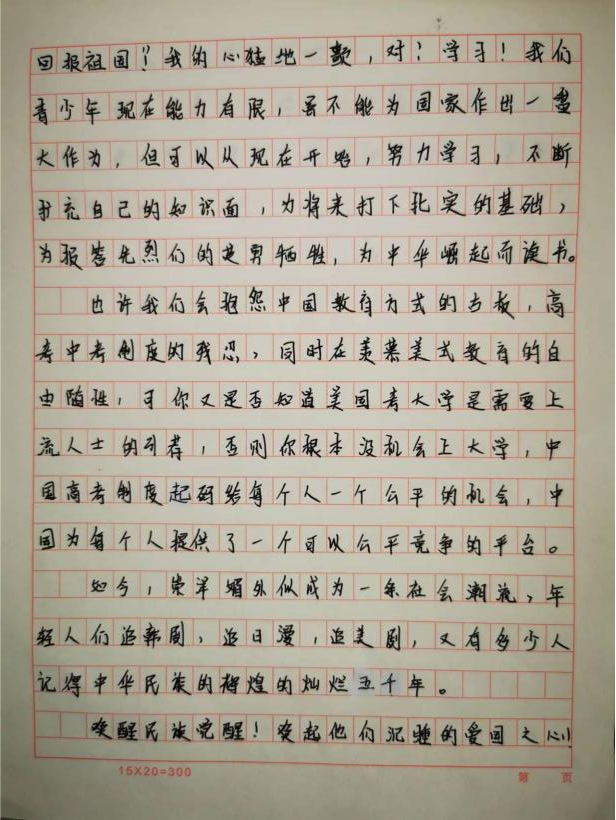 回报祖国！”我的心猛地一颤，对！学习！我们
青少年现在能力有限，虽不能为国家作出一番
大作为，但可以从现在开始，努力学习，不断
补充自己的知识面，为将来打下扎实的基础，
为报答先烈们的英勇牺牲，为中华崛起而读书。
也许我们会抱怨中国教育方式的古板，高
考中考制度的残忍，同时在羡慕美式教育的自
由随性，可你又是否知道美国考大学是需要上
流人士的引荐，否则你根本没机会上大学，中
国高考制度起码给每个人一个公平的机会，中
国为每个人提供了一个可以公平竞争的平台。
如今，崇洋媚外似成为一条社会潮流，年
轻人们追韩剧，追日漫，追美剧，又有多少人
记得中华民族的辉煌的灿烂五千年。
唤醒民族觉醒！唤起他们沉睡的爱国之心！
15X20=300 第 页